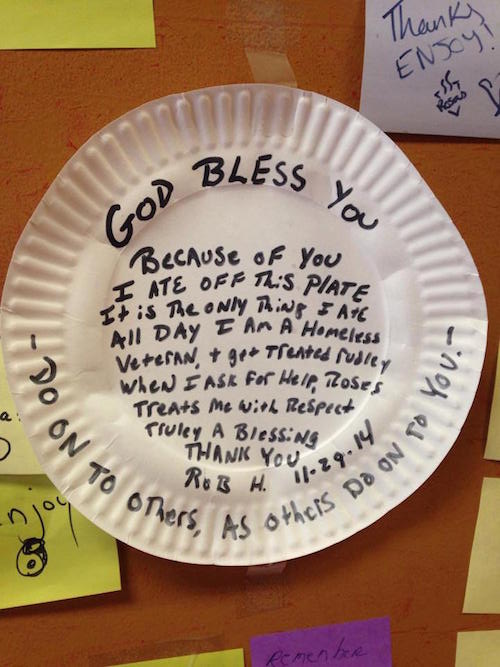 Thanks
ENJOY!
Rosa's
GOD BLESS You
BECAUSE OF You
I ATE OFF This PlATE
It is The only Thing I Ate
All DAY I Am A Homeless
Veteran, + get Treated rudley
when I ASK For Help, Roses
Treats Me with Respect
Truley A Blessing
THANK You
RoB H. 11-29-14
- DO ON TO OTHers, As others DO ON TO YOU. -
njoy
Remember